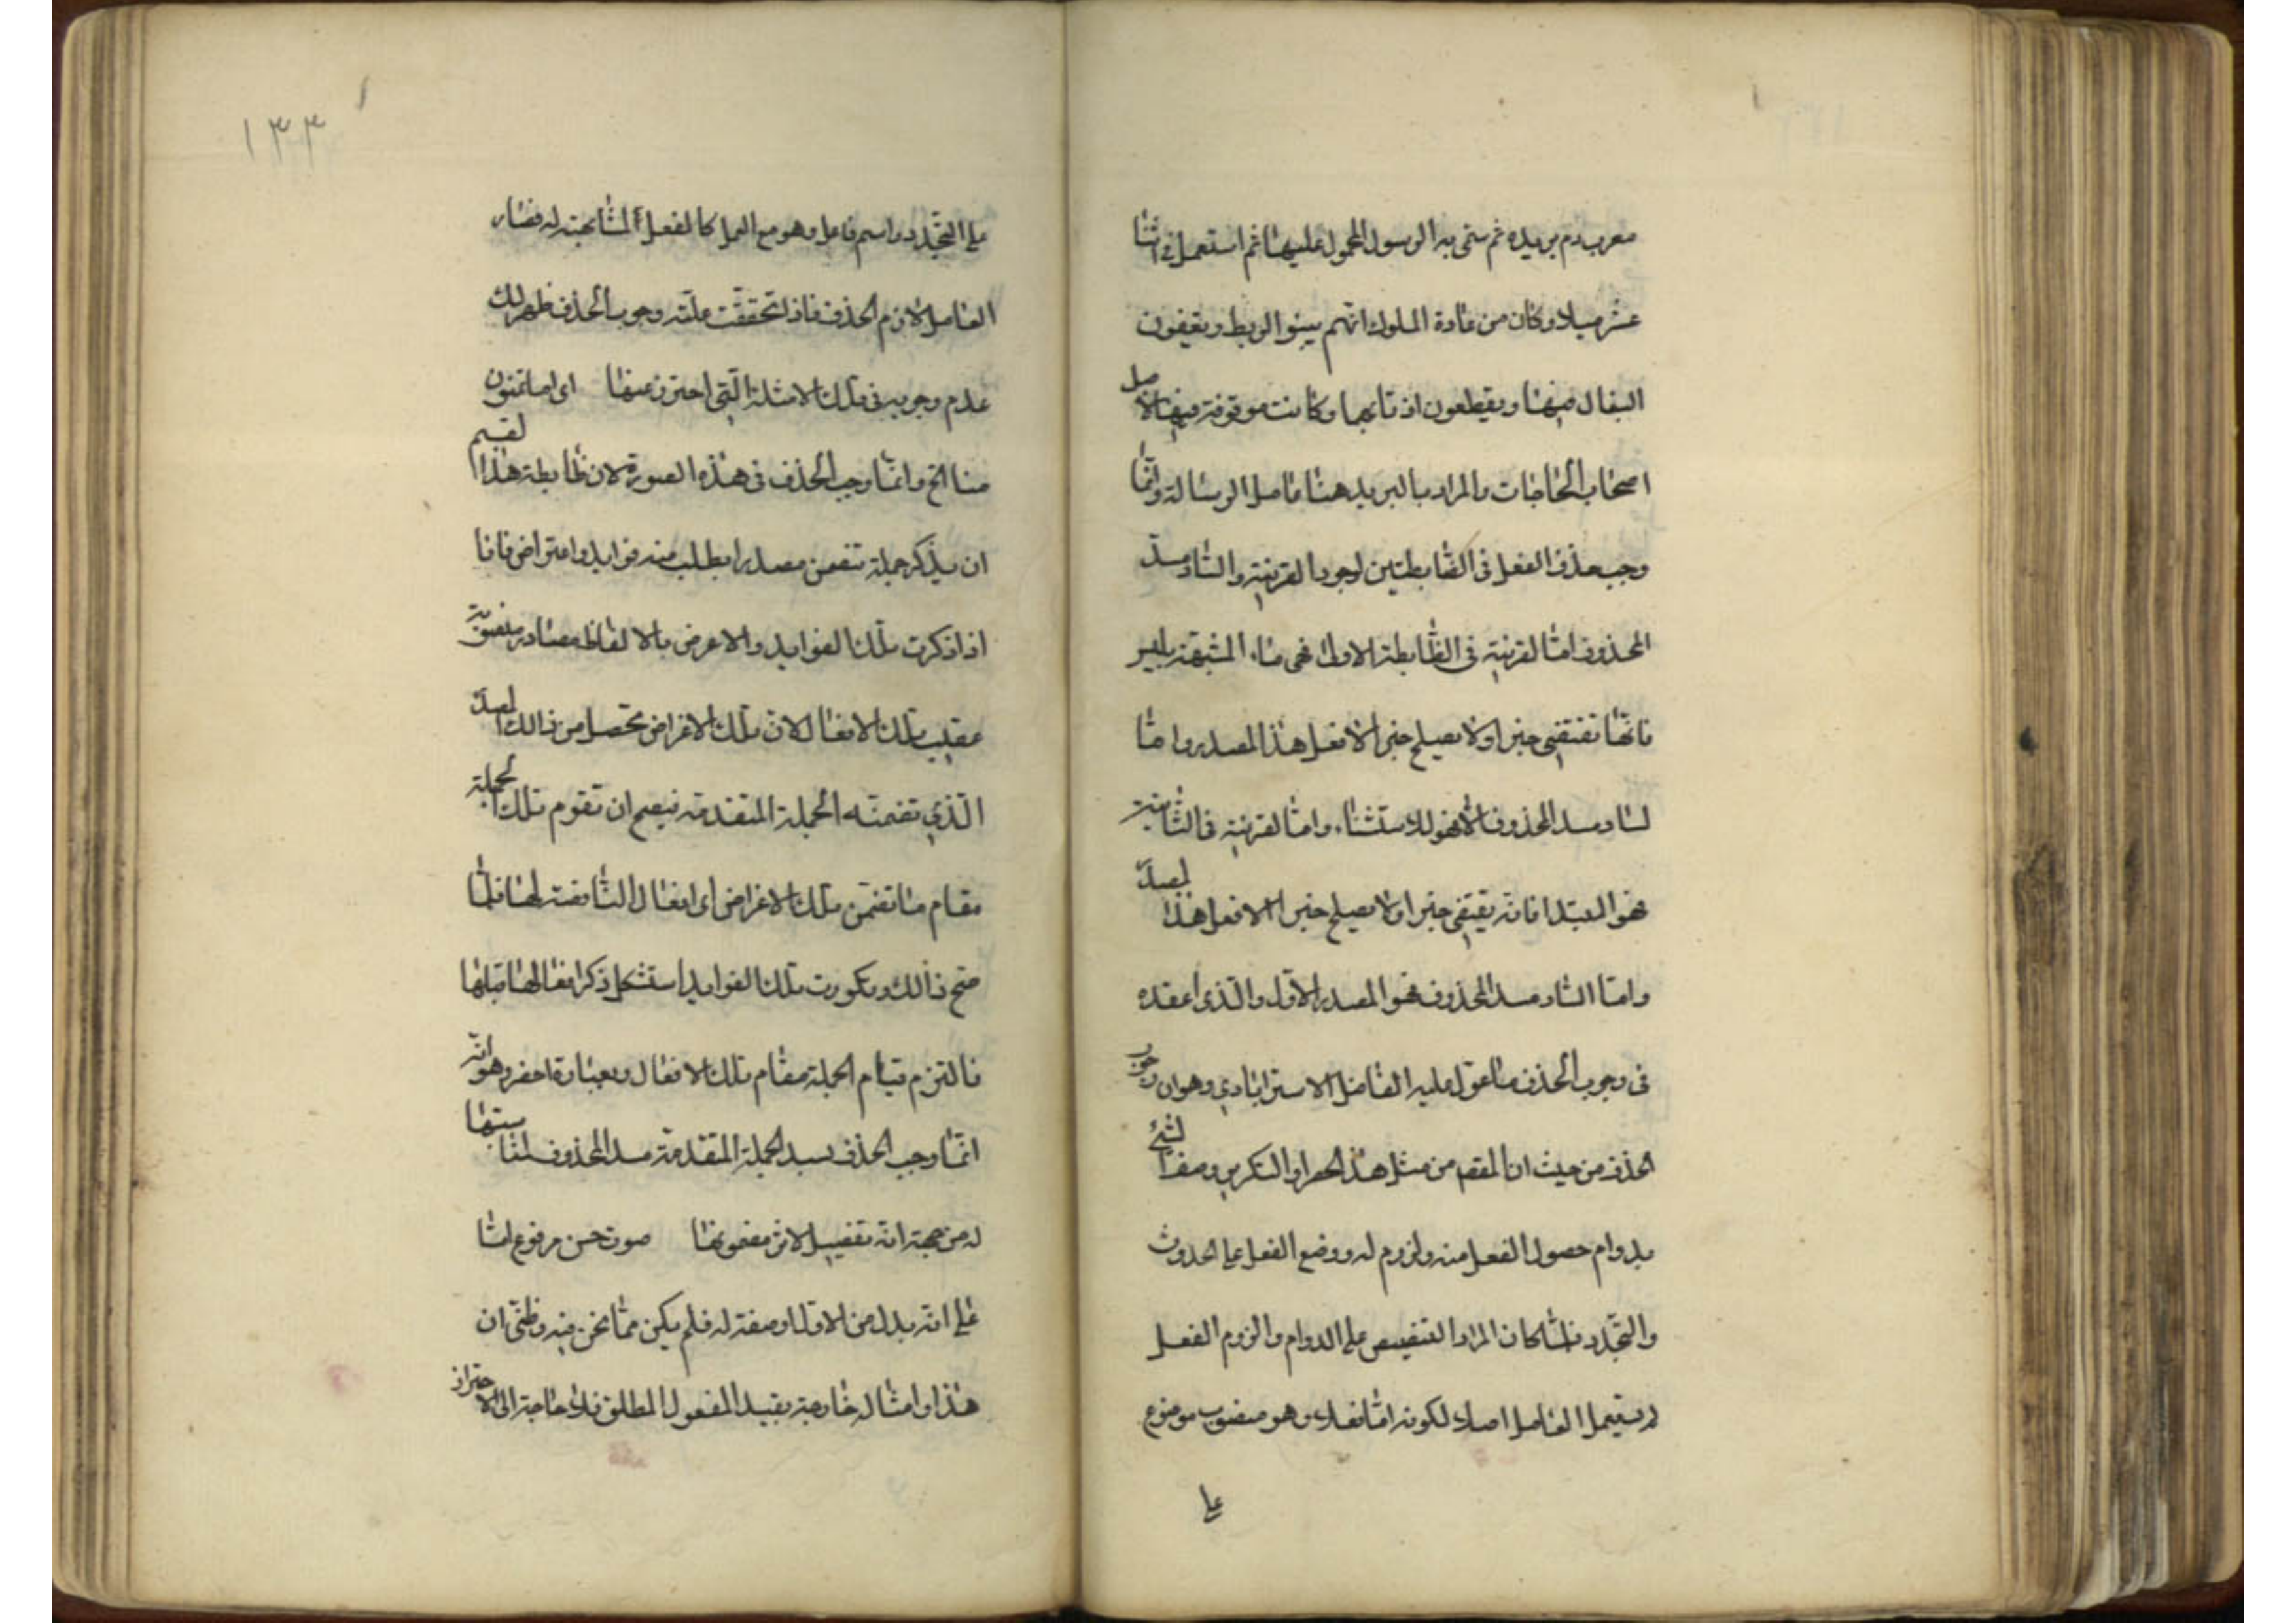 معرب دم بريده ثم سمى به الرسول المحمول عليها ثم استعمل فى اثنا
عشر ميلا وكان من عادة الملوك انهم يبنوا الربط ويقيفون
البغال فيها ويقطعون اذنابها وكانت موقوفة فيها لاجل
اصحاب الحاجات والمراد بالبريد هنا حامل الرسالة وانما
وجب حذف الفعل فى الضابطتين لوجود القرينة والساد مسد
المحذوف اما القرينة فى الظابطة الاولى فهى ماء المشبهة بليس
فانها تقتضى خبرا ولا يصلح خبرا الا فعل هذا المصدر واما
الساد مسد المحذوف الا فهو للاستثناء واما القرينة فى الثانية
فهو المبتدا فانه يقتضى خبرا ولا يصلح خبرا الا فعل هذا المصدر
واما الساد مسد المحذوف فهو المصدر الاول والذى اعقده
فى وجوب الحذف ما عول عليه الفاضل الاسترابادى وهو ان وجوب
الحذف من حيث ان المقصد من مثل هذا الحصر او التكرير وصف الشئ
بدوام حصول الفعل منه ولزوم له ووضع الفعل على الحدوث
والتجدد فلما كان المراد التنصيص على الدوام والزوم الفعل
لم يستعمل العامل اصلا لكونه اما فعلا وهو منصوب موضوع
على
١٣٣
على التجدد واسم فاعل وهو مع العمل كالفعل المشابهته له فصار
العامل لازم الحذف فاذا تحققت علته وجوب الحذف ظهر لك
عدم وجوبه فى تلك الامثلة التى احترز عنها اى اما تمنون
منا الخ وانما وجب الحذف فى هذه الصورة لان ظابطة هذا القسم
ان يذكر جملة تتضمن مصدرا يطلب منه فوايد واعتراض فانا
اذا ذكرت تلك الفوايد والاعرض بالالفاظ مصادر منصوبة
عقيب تلك الافعال لان تلك الاغراض تحصل من ذالك المصدر
الذى تضمنته الجملة المتقدمة فيصح ان تقوم تلك الجملة
مقام ما تضمن تلك الاغراض اى افعال الناصفته لها فلما
صح ذالك وتكورت تلك الفوايد استثقل ذكر افعالها قبلها
فالتزم قيام الجملة مقام تلك الافعال وبعبارة اخصر وهو انه
انما وجب الحذف لسد الجملة المتقدمة مسد المحذوف لمناسبتها
له من جهة انه تفصيل لاثر مضمونها صوت حسن مرفوع اما
على انه بدل من الاول او صفة له فلم يكن مما نحن فيه وظنى ان
هذا وامثاله خارجة بقيد المفعول المطلق فلا حاجة الى الاحتراز